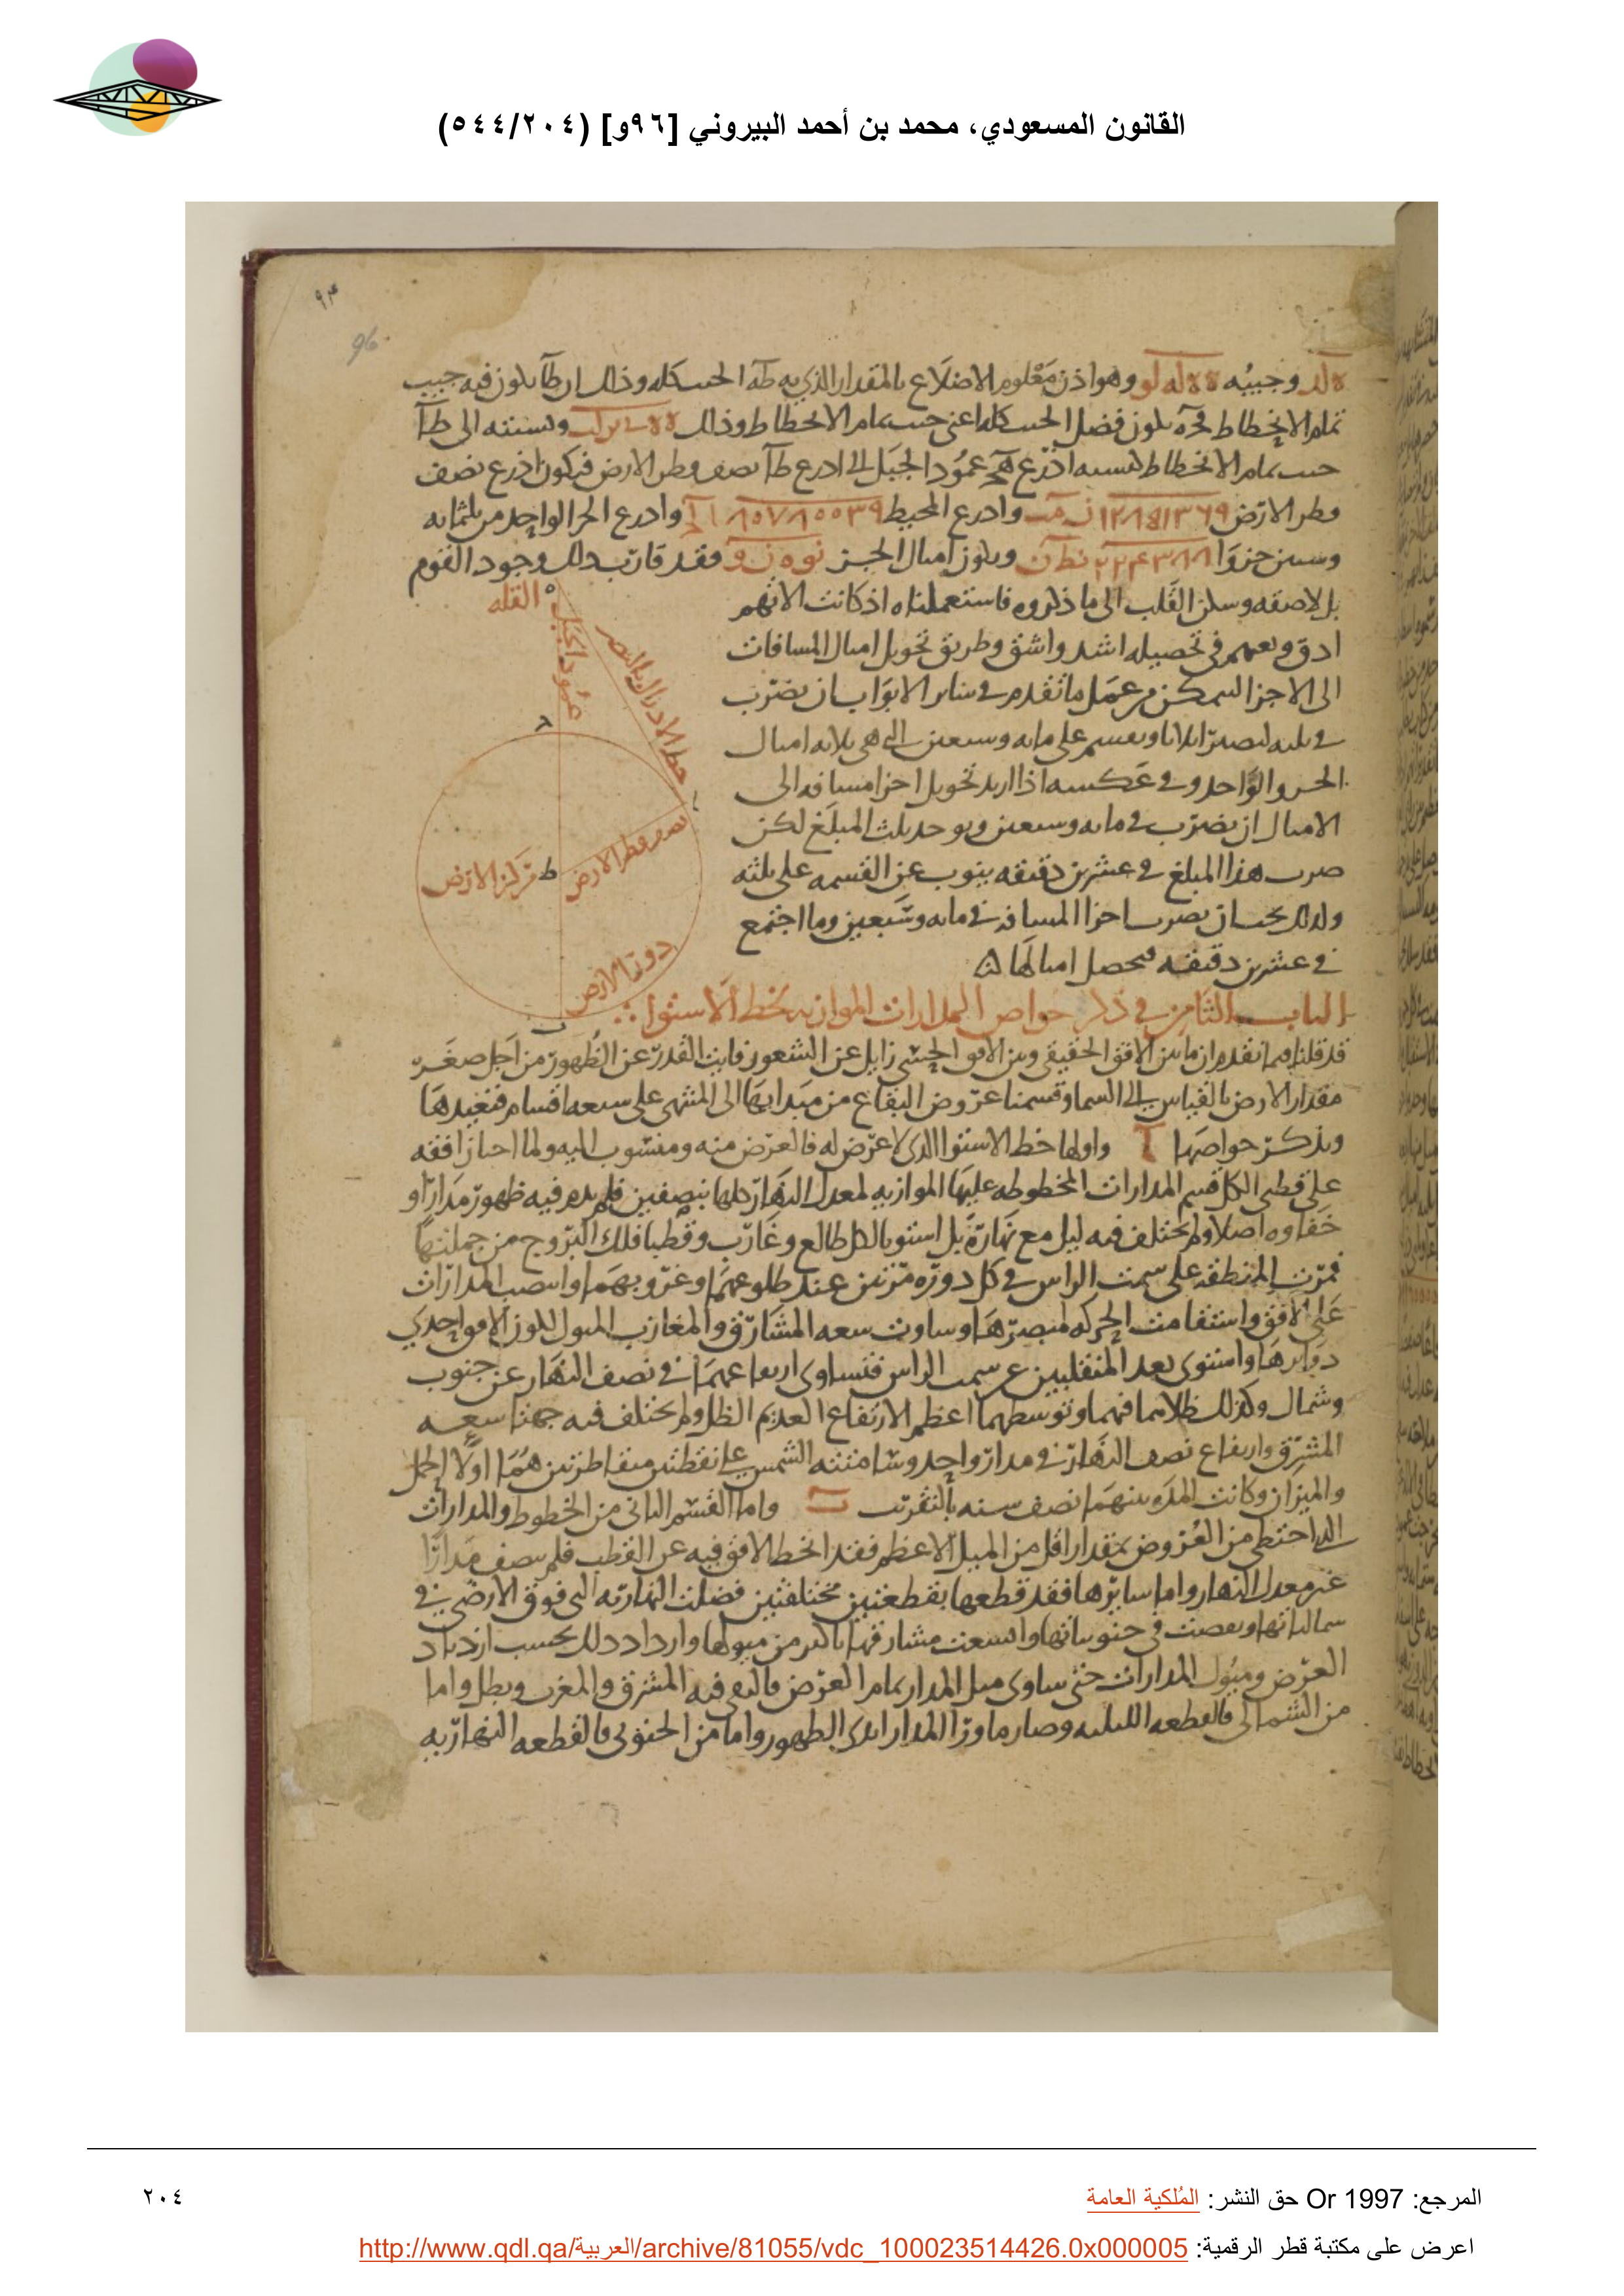 القانون المسعودي، محمد بن أحمد البيروني [٩٦و] (٥٤٤/٢٠٤)
٩٣
96
لد وجيبه وهو اذن معلوم الاضلاع بالمقدار الذى به طه الجيب كله وذلك ان طا يكون فيه جيب
تمام الانحطاط يكون فضل الجيب كله اعنى جيب تمام الانحطاط وذلك ونسبته الى طا
جيب تمام الانحطاط كنسبة اذرع عمود الجبل الى اذرع طا نصف قطر الارض فيكون اذرع نصف
قطر الارض واذرع المحيط واذرع الجزا الواحد من ثلثمايه
وستين جزوا ويكون اميال الجز فقد قارب ذلك وجود القوم
بل لاصقه وسكن القلب الى ما ذكروه فاستعملناه اذ كانت الاتهم
ادق وتعبهم فى تحصيله اشد واشق وطريق تحويل اميال المسافات
الى الاجزا من عمل ما تقدم فى ساير الابواب ان يضرب
فى ثلثه ليصير اثلاثا ويقسم على مايه وسبعين التى هى ثلاثه اميال
الجزو الواحد وفى عكسه اذا اريد تحويل اجزا مسافه الى
الاميال ان يضرب فى مايه وسبعين ويوخذ ثلث المبلغ لكن
ضرب هذا المبلغ فى عشرين دقيقه ينوب عن القسمه على ثلثه
ولذلك يجب ان يضرب اجزا المسافه فى مايه وسبعين وما اجتمع
فى عشرين دقيقه فيحصل اميالها
القله
عمود الجبل
خط الادراك بالبصر
نصف قطر الارض
ط مركز الارض
دور الارض
الباب الثامن فى ذكر خواص المدارات الموازيه لخط الاستوا
قد قلنا فيما تقدم ان ما بين الافق الحقيقى وبين الافق الحسى زايل عن الشعور فايت القدر عن الظهور من اجل صغر
مقدار الارض بالقياس الى السما وقسمنا عروض البقاع من مبدايها الى المنتهى على سبعه اقسام فنعيدها
ونذكر خواصها ا واولها خط الاستوا الذى لا عرض له فالعرض منه ومنسوب اليه ولما اجتاز افقه
على قطبى الكل قسم المدارات المخطوطه عليها الموازيه لمعدل النهار كلها بنصفين فلم يدم فيه ظهور مدار او
خفاوه اصلا ولم يختلف فيه ليل مع نهاره بل استويا لكل طالع وغارب وقطبا فلك البروج من جملتها
فمرت المنطقه على سمت الراس فى كل دوره مرتين عند طلوعهما وغروبهما وانتصب المدارات
على الافق واستقامت الحركه لمبصرها وساوت سعه المشارق والمغارب الميول لكون الافق احدى
دوايرها واستوى بعد المنقلبين عن سمت الراس فتساوى ارتفاعهما فى نصف النهار عن جنوب
وشمال وكذلك ظلاهما فيهما وتوسطهما اعظم الارتفاع العديم الظل ولم يختلف فيه جهتا سعه
المشرق وارتفاع نصف النهار فى مدار واحد وسامتته الشمس على نقطتين متقاطرتين هما اولا الحمل
والميزان وكانت المده بينهما نصف سنه بالتقريب ب واما القسم الثانى من الخطوط والمدارات
التى احتظى من العروض بمقدار اقل من الميل الاعظم فقد انحط الافق فيه عن القطب فلم ينصف مدارا
غير معدل النهار واما سايرها فقد قطعها بقطعتين مختلفتين فضلت النهاريه التى فوق الارض فى
شمالياتها ونقصت فى جنوبياتها واتسعت مشارقها باكثر من ميولها وازداد ذلك بحسب ازدياد
العرض وميول المدارات حتى ساوى ميل المدار تمام العرض فالتقى فيه المشرق والمغرب وبطل واما
من الشمالى فالقطعه الليليه وصار ما ورا المدار ابدى الظهور واما من الجنوبى فالقطعه النهاريه
المرجع: Or 1997 حق النشر: المُلكية العامة
٢٠٤
اعرض على مكتبة قطر الرقمية: http://www.qdl.qa/العربية/archive/81055/vdc_100023514426.0x000005